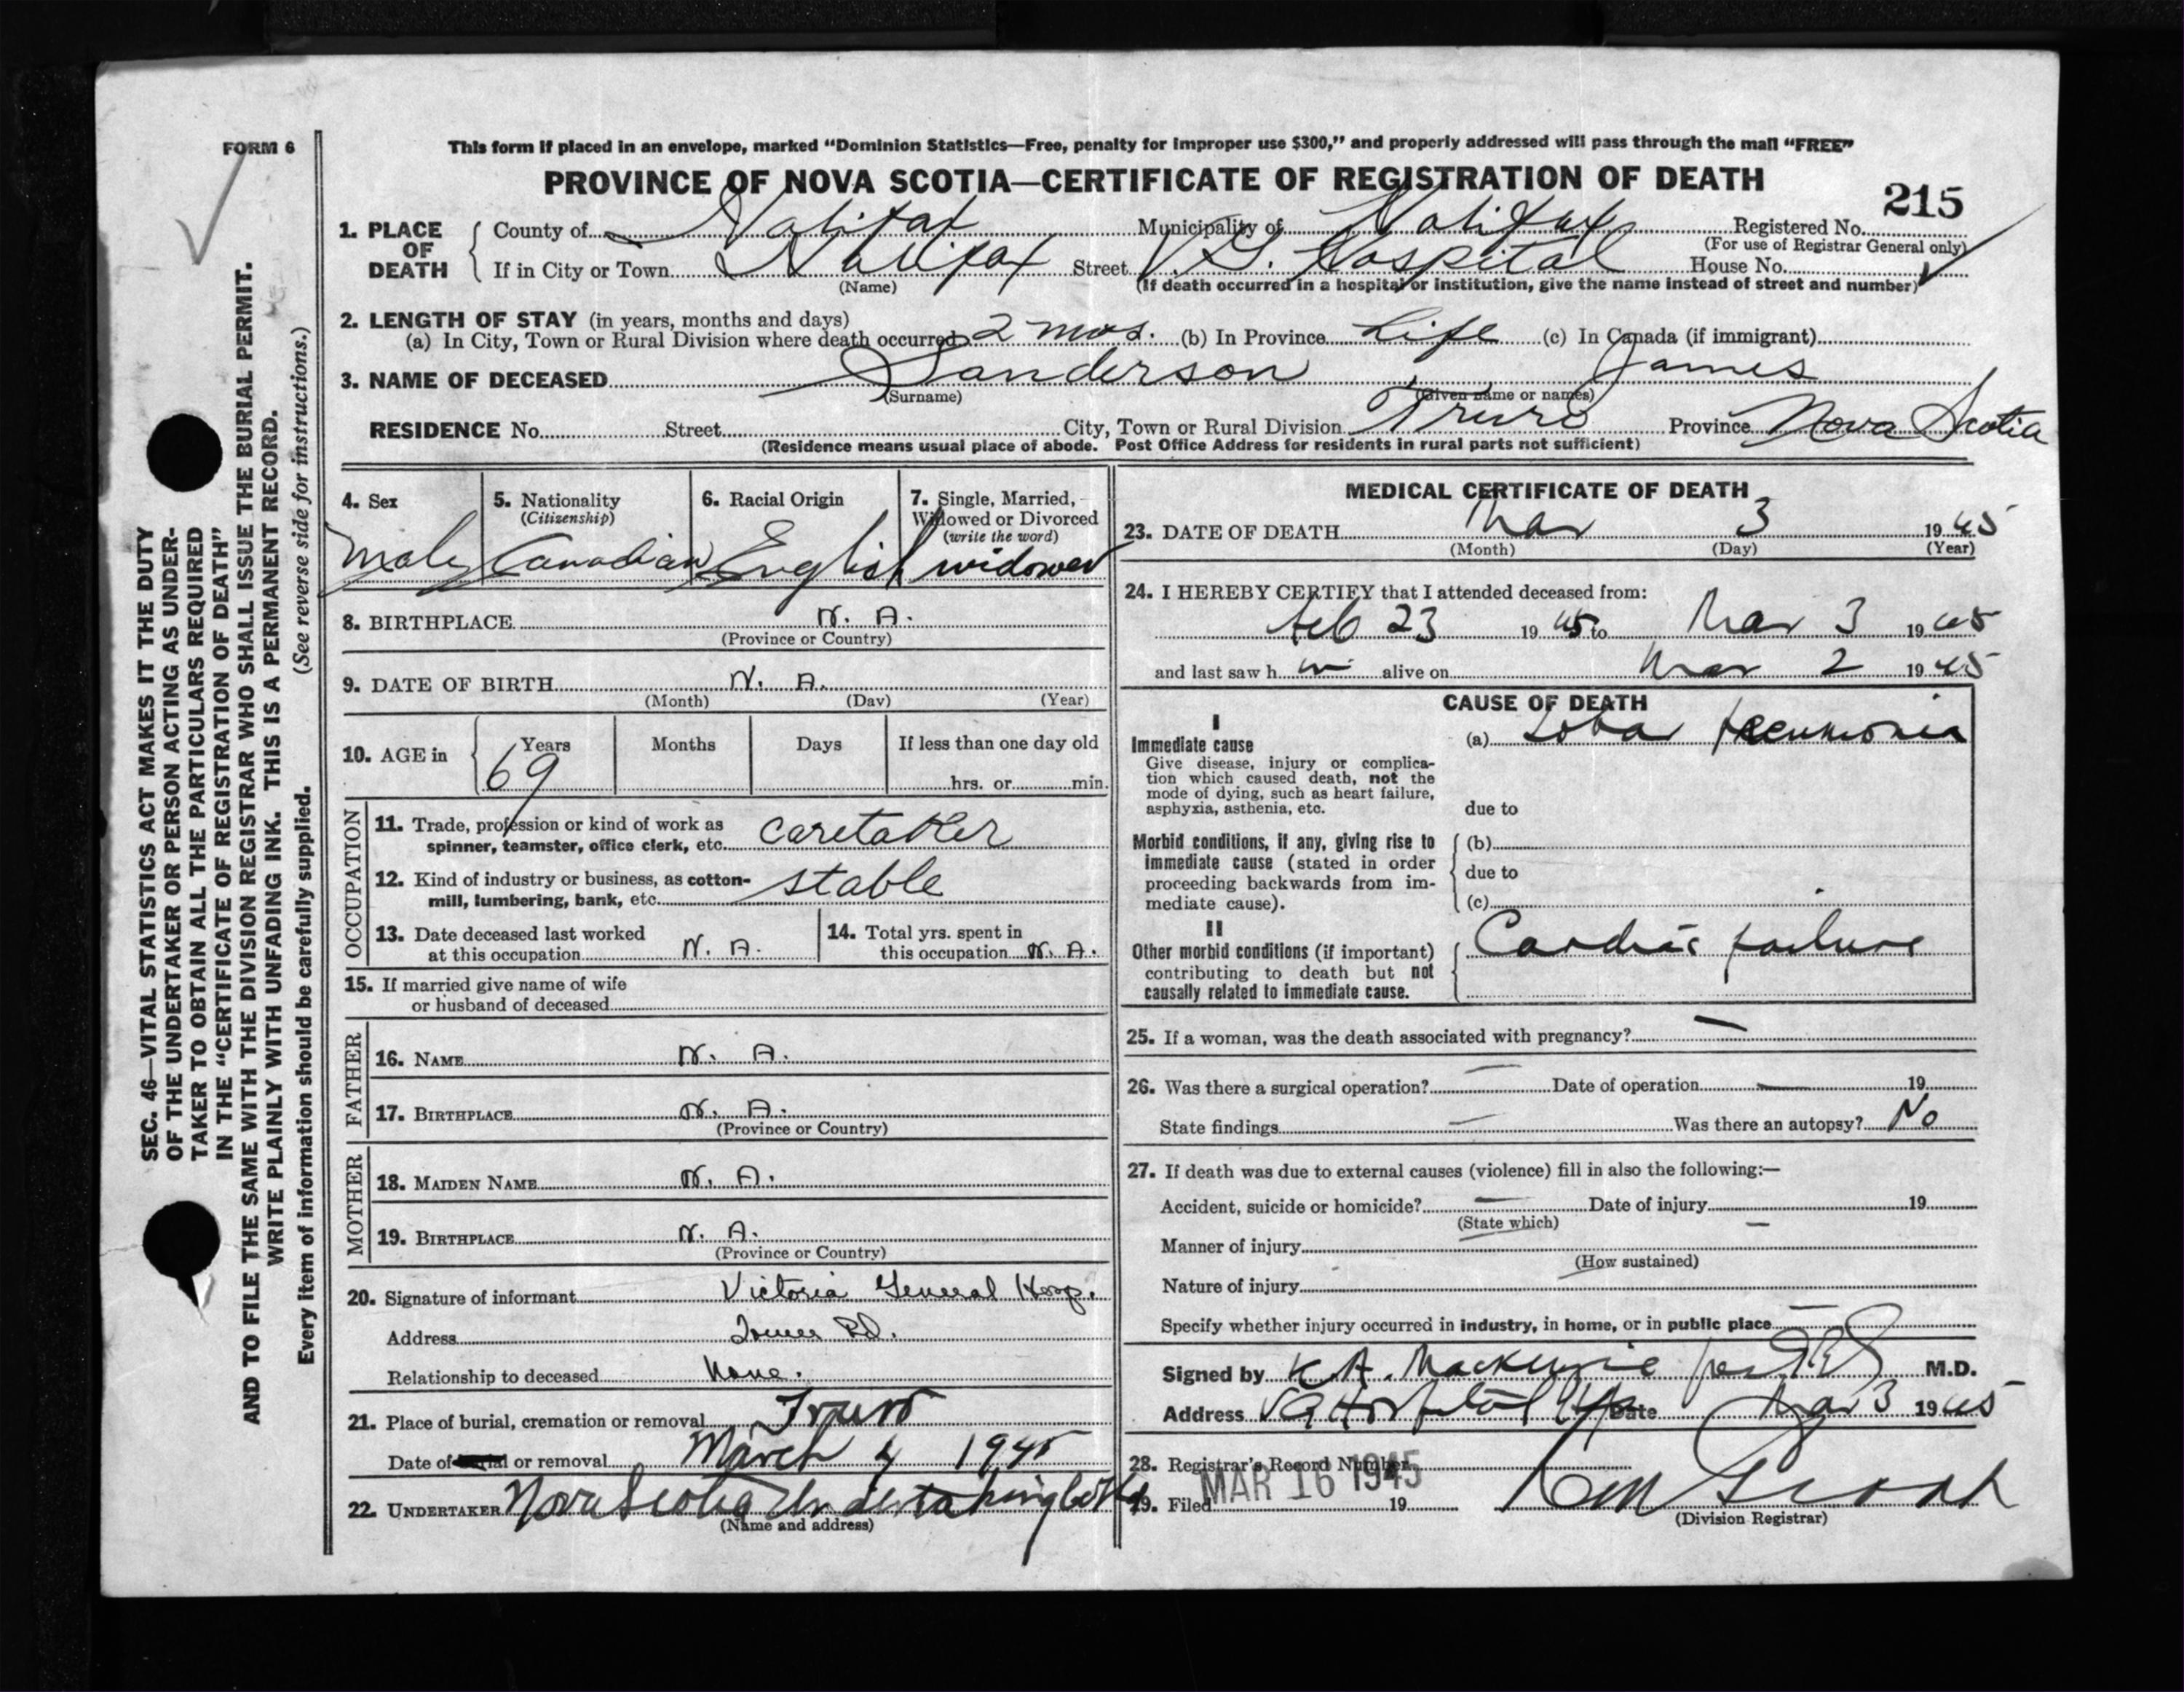 FORM 6
This form if placed in an envelope, marked “Dominion Statistics—Free, penalty for improper use $300,” and properly addressed will pass through the mail “FREE”
PROVINCE OF NOVA SCOTIA—CERTIFICATE OF REGISTRATION OF DEATH
215
1. PLACE OF DEATH
County of Halifax Municipality of Halifax Registered No.
(For use of Registrar General only)
If in City or Town Halifax Street V. G. Hospital House No.
(Name) (If death occurred in a hospital or institution, give the name instead of street and number)
2. LENGTH OF STAY (in years, months and days)
(a) In City, Town or Rural Division where death occurred 2 mos. (b) In Province Life (c) In Canada (if immigrant)
3. NAME OF DECEASED Sanderson James
(Surname) (Given name or names)
RESIDENCE No. Street City, Town or Rural Division Truro Province Nova Scotia
(Residence means usual place of abode. Post Office Address for residents in rural parts not sufficient)
4. Sex
Male
5. Nationality
(Citizenship)
Canadian
6. Racial Origin
English
7. Single, Married,
Widowed or Divorced
(write the word)
widower
8. BIRTHPLACE N. A.
(Province or Country)
9. DATE OF BIRTH N. A.
(Month) (Day) (Year)
10. AGE in Years Months Days If less than one day old
69 hrs. or min.
OCCUPATION
11. Trade, profession or kind of work as
spinner, teamster, office clerk, etc. caretaker
12. Kind of industry or business, as cotton-
mill, lumbering, bank, etc. stable
13. Date deceased last worked
at this occupation N. A.
14. Total yrs. spent in
this occupation N. A.
15. If married give name of wife
or husband of deceased
FATHER
16. NAME N. A.
17. BIRTHPLACE N. A.
(Province or Country)
MOTHER
18. MAIDEN NAME N. A.
19. BIRTHPLACE N. A.
(Province or Country)
20. Signature of informant Victoria General Hosp.
Address Tower Rd.
Relationship to deceased None.
21. Place of burial, cremation or removal Truro
Date of burial or removal March 4 1945
22. UNDERTAKER Nova Scotia Undertaking Co
(Name and address)
MEDICAL CERTIFICATE OF DEATH
23. DATE OF DEATH Mar 3 1945
(Month) (Day) (Year)
24. I HEREBY CERTIFY that I attended deceased from:
Feb 23 1945 to Mar 3 1945
and last saw h im alive on Mar 2 1945
CAUSE OF DEATH
I
Immediate cause
Give disease, injury or complica-
tion which caused death, not the
mode of dying, such as heart failure,
asphyxia, asthenia, etc.
(a) Lobar Pneumonia
due to
Morbid conditions, if any, giving rise to
immediate cause (stated in order
proceeding backwards from im-
mediate cause).
(b)
due to
(c)
II
Other morbid conditions (if important)
contributing to death but not
causally related to immediate cause.
Cardiac failure
25. If a woman, was the death associated with pregnancy? —
26. Was there a surgical operation? — Date of operation — 19
State findings — Was there an autopsy? No
27. If death was due to external causes (violence) fill in also the following:—
Accident, suicide or homicide? — Date of injury 19
(State which) —
Manner of injury
(How sustained)
Nature of injury
Specify whether injury occurred in industry, in home, or in public place —
Signed by K. A. Mackenzie per M.D.
Address V G Hospital Hfx Date Mar 3 1945
28. Registrar's Record Number
MAR 16 1945
29. Filed 19
(Division Registrar)
SEC. 46—VITAL STATISTICS ACT MAKES IT THE DUTY
OF THE UNDERTAKER OR PERSON ACTING AS UNDER-
TAKER TO OBTAIN ALL THE PARTICULARS REQUIRED
IN THE “CERTIFICATE OF REGISTRATION OF DEATH”
AND TO FILE THE SAME WITH THE DIVISION REGISTRAR WHO SHALL ISSUE THE BURIAL PERMIT.
WRITE PLAINLY WITH UNFADING INK. THIS IS A PERMANENT RECORD.
Every item of information should be carefully supplied. (See reverse side for instructions.)